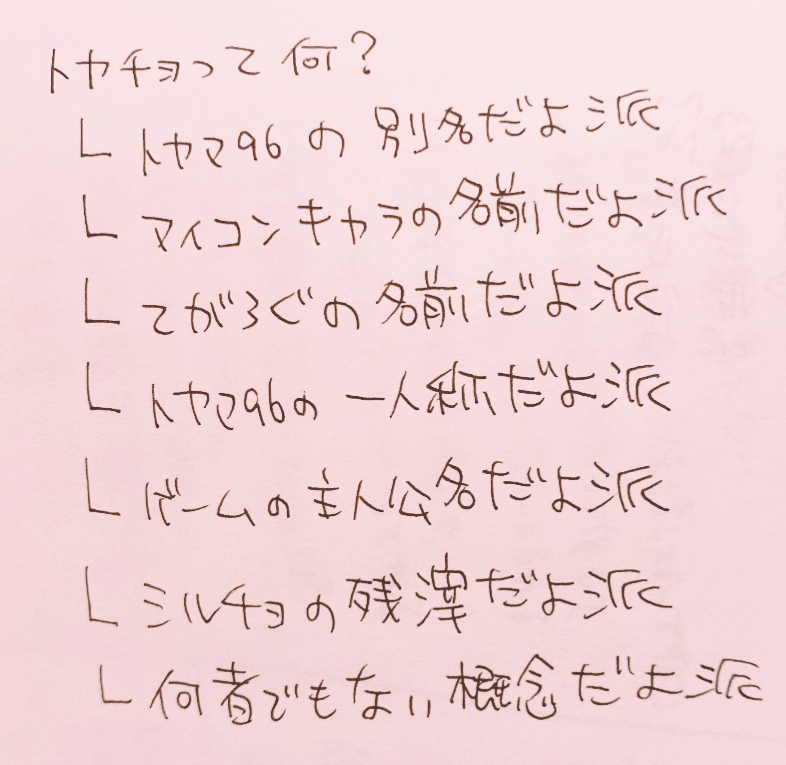 トヤチョって何?
L トヤマ96の別名だよ派
L マイコンキャラの名前だよ派
L てがろぐの名前だよ派
L トヤマ96の一人称だよ派
L ゲームの主人公名だよ派
L ミルチョの残滓だよ派
L 何者でもない概念だよ派